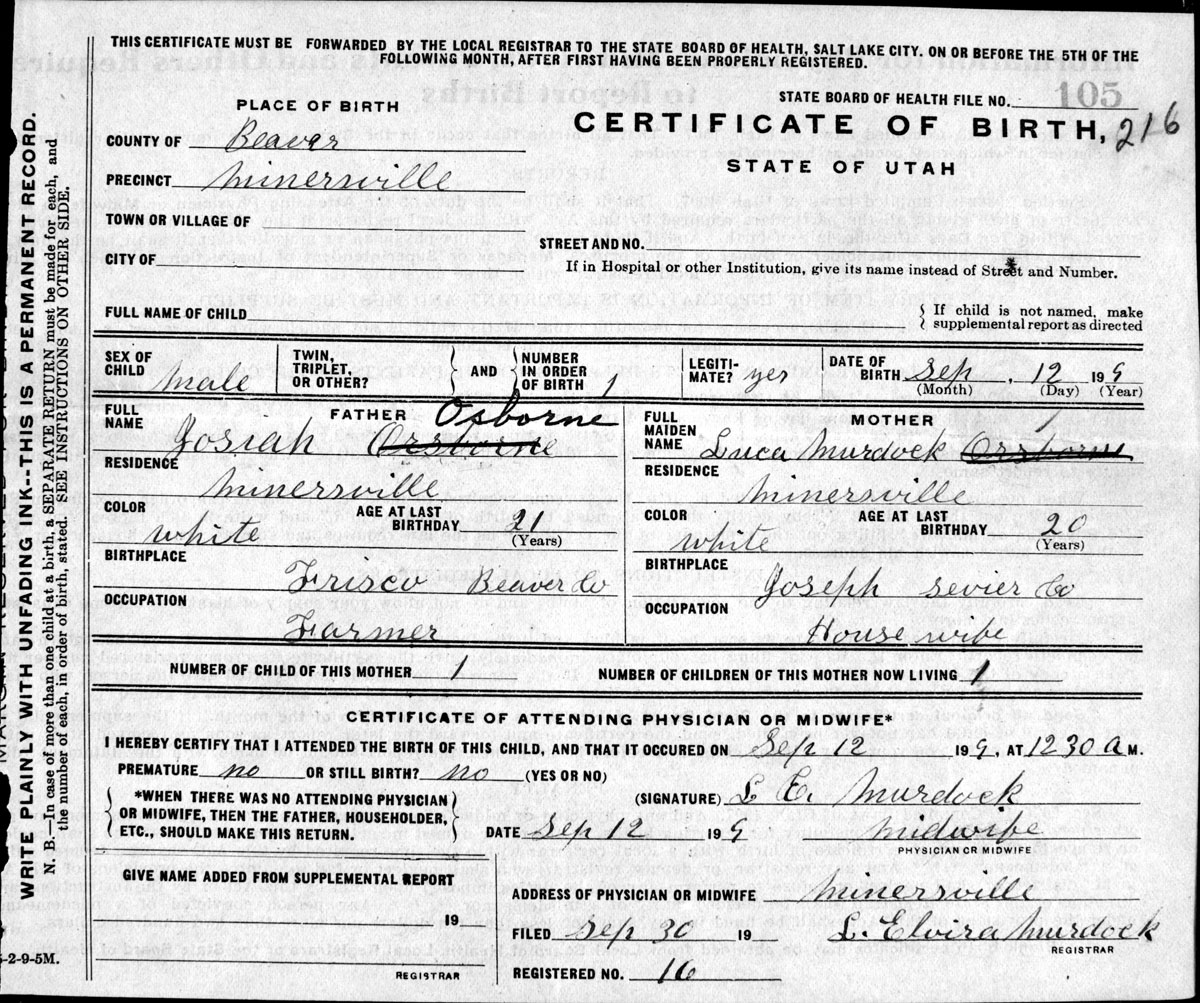 THIS CERTIFICATE MUST BE FORWARDED BY THE LOCAL REGISTRAR TO THE STATE BOARD OF HEALTH, SALT LAKE CITY. ON OR BEFORE THE 5TH OF THE
FOLLOWING MONTH, AFTER FIRST HAVING BEEN PROPERLY REGISTERED.
PLACE OF BIRTH
STATE BOARD OF HEALTH FILE NO. 105
CERTIFICATE OF BIRTH, 216
STATE OF UTAH
COUNTY OF Beaver
PRECINCT Minersville
TOWN OR VILLAGE OF
STREET AND NO.
CITY OF
If in Hospital or other Institution, give its name instead of Street and Number.
FULL NAME OF CHILD
If child is not named, make
supplemental report as directed
SEX OF CHILD male TWIN, TRIPLET, OR OTHER? AND NUMBER IN ORDER OF BIRTH 1 LEGITI-MATE? yes DATE OF BIRTH Sep, 12 199
(Month) (Day) (Year)
FATHER
FULL NAME Josiah Orsborne Osborne
RESIDENCE Minersville
COLOR white AGE AT LAST BIRTHDAY 21
(Years)
BIRTHPLACE Frisco Beaver Co
OCCUPATION Farmer
MOTHER
FULL MAIDEN NAME Luca Murdock Orsborne
RESIDENCE Minersville
COLOR white AGE AT LAST BIRTHDAY 20
(Years)
BIRTHPLACE Joseph sevier Co
OCCUPATION House wife
NUMBER OF CHILD OF THIS MOTHER 1 NUMBER OF CHILDREN OF THIS MOTHER NOW LIVING 1
CERTIFICATE OF ATTENDING PHYSICIAN OR MIDWIFE*
I HEREBY CERTIFY THAT I ATTENDED THE BIRTH OF THIS CHILD, AND THAT IT OCCURED ON Sep 12 199, AT 12 30 a M.
PREMATURE no OR STILL BIRTH? no (YES OR NO)
*WHEN THERE WAS NO ATTENDING PHYSICIAN
OR MIDWIFE, THEN THE FATHER, HOUSEHOLDER,
ETC., SHOULD MAKE THIS RETURN.
(SIGNATURE) L E. Murdock
DATE Sep 12 199 Midwife
PHYSICIAN OR MIDWIFE
GIVE NAME ADDED FROM SUPPLEMENTAL REPORT
19
REGISTRAR
ADDRESS OF PHYSICIAN OR MIDWIFE Minersville
FILED Sep 30 19 L. Elvira Murdock
REGISTRAR
REGISTERED NO. 16
WRITE PLAINLY WITH UNFADING INK--THIS IS A PERMANENT RECORD.
N. B.—In case of more than one child at a birth, a SEPARATE RETURN must be made for each, and
the number of each, in order of birth, stated. SEE INSTRUCTIONS ON OTHER SIDE.
-2-9-5M.